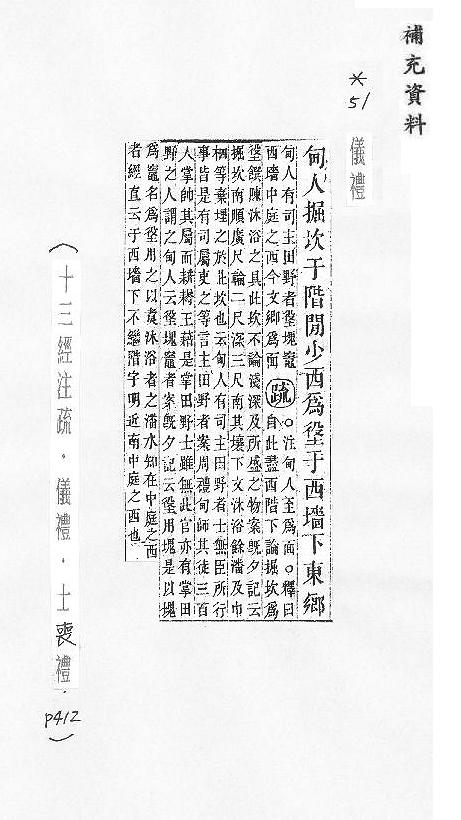 補充資料
*51
儀禮
甸人掘坎于階閒少西為垼于西墻下東鄉
甸人有司主田野者垼塊竈
西墻中庭之西今文鄉為面
疏
○注甸人至為面○釋曰
自此盡西階下論掘坎為
垼饌陳沐浴之具此坎不論淺深及所盛之物案既夕記云
掘坎南順廣尺輪二尺深三尺南其壤下文沐浴餘潘及巾
柶等棄埋之於此坎也云甸人有司主田野者士無臣所行
事皆是有司屬吏之等言主田野者案周禮甸師其徒三百
人掌帥其屬而耕耨王藉是掌田野士雖無此官亦有掌田
野之人謂之甸人云垼塊竈者案既夕記云垼用塊是以塊
為竈名為垼用之以煑沐浴者之潘水知在中庭之西
者經直云于西墻下不繼階字明近南中庭之西也
（十三經注疏．儀禮．士喪禮．
P412）